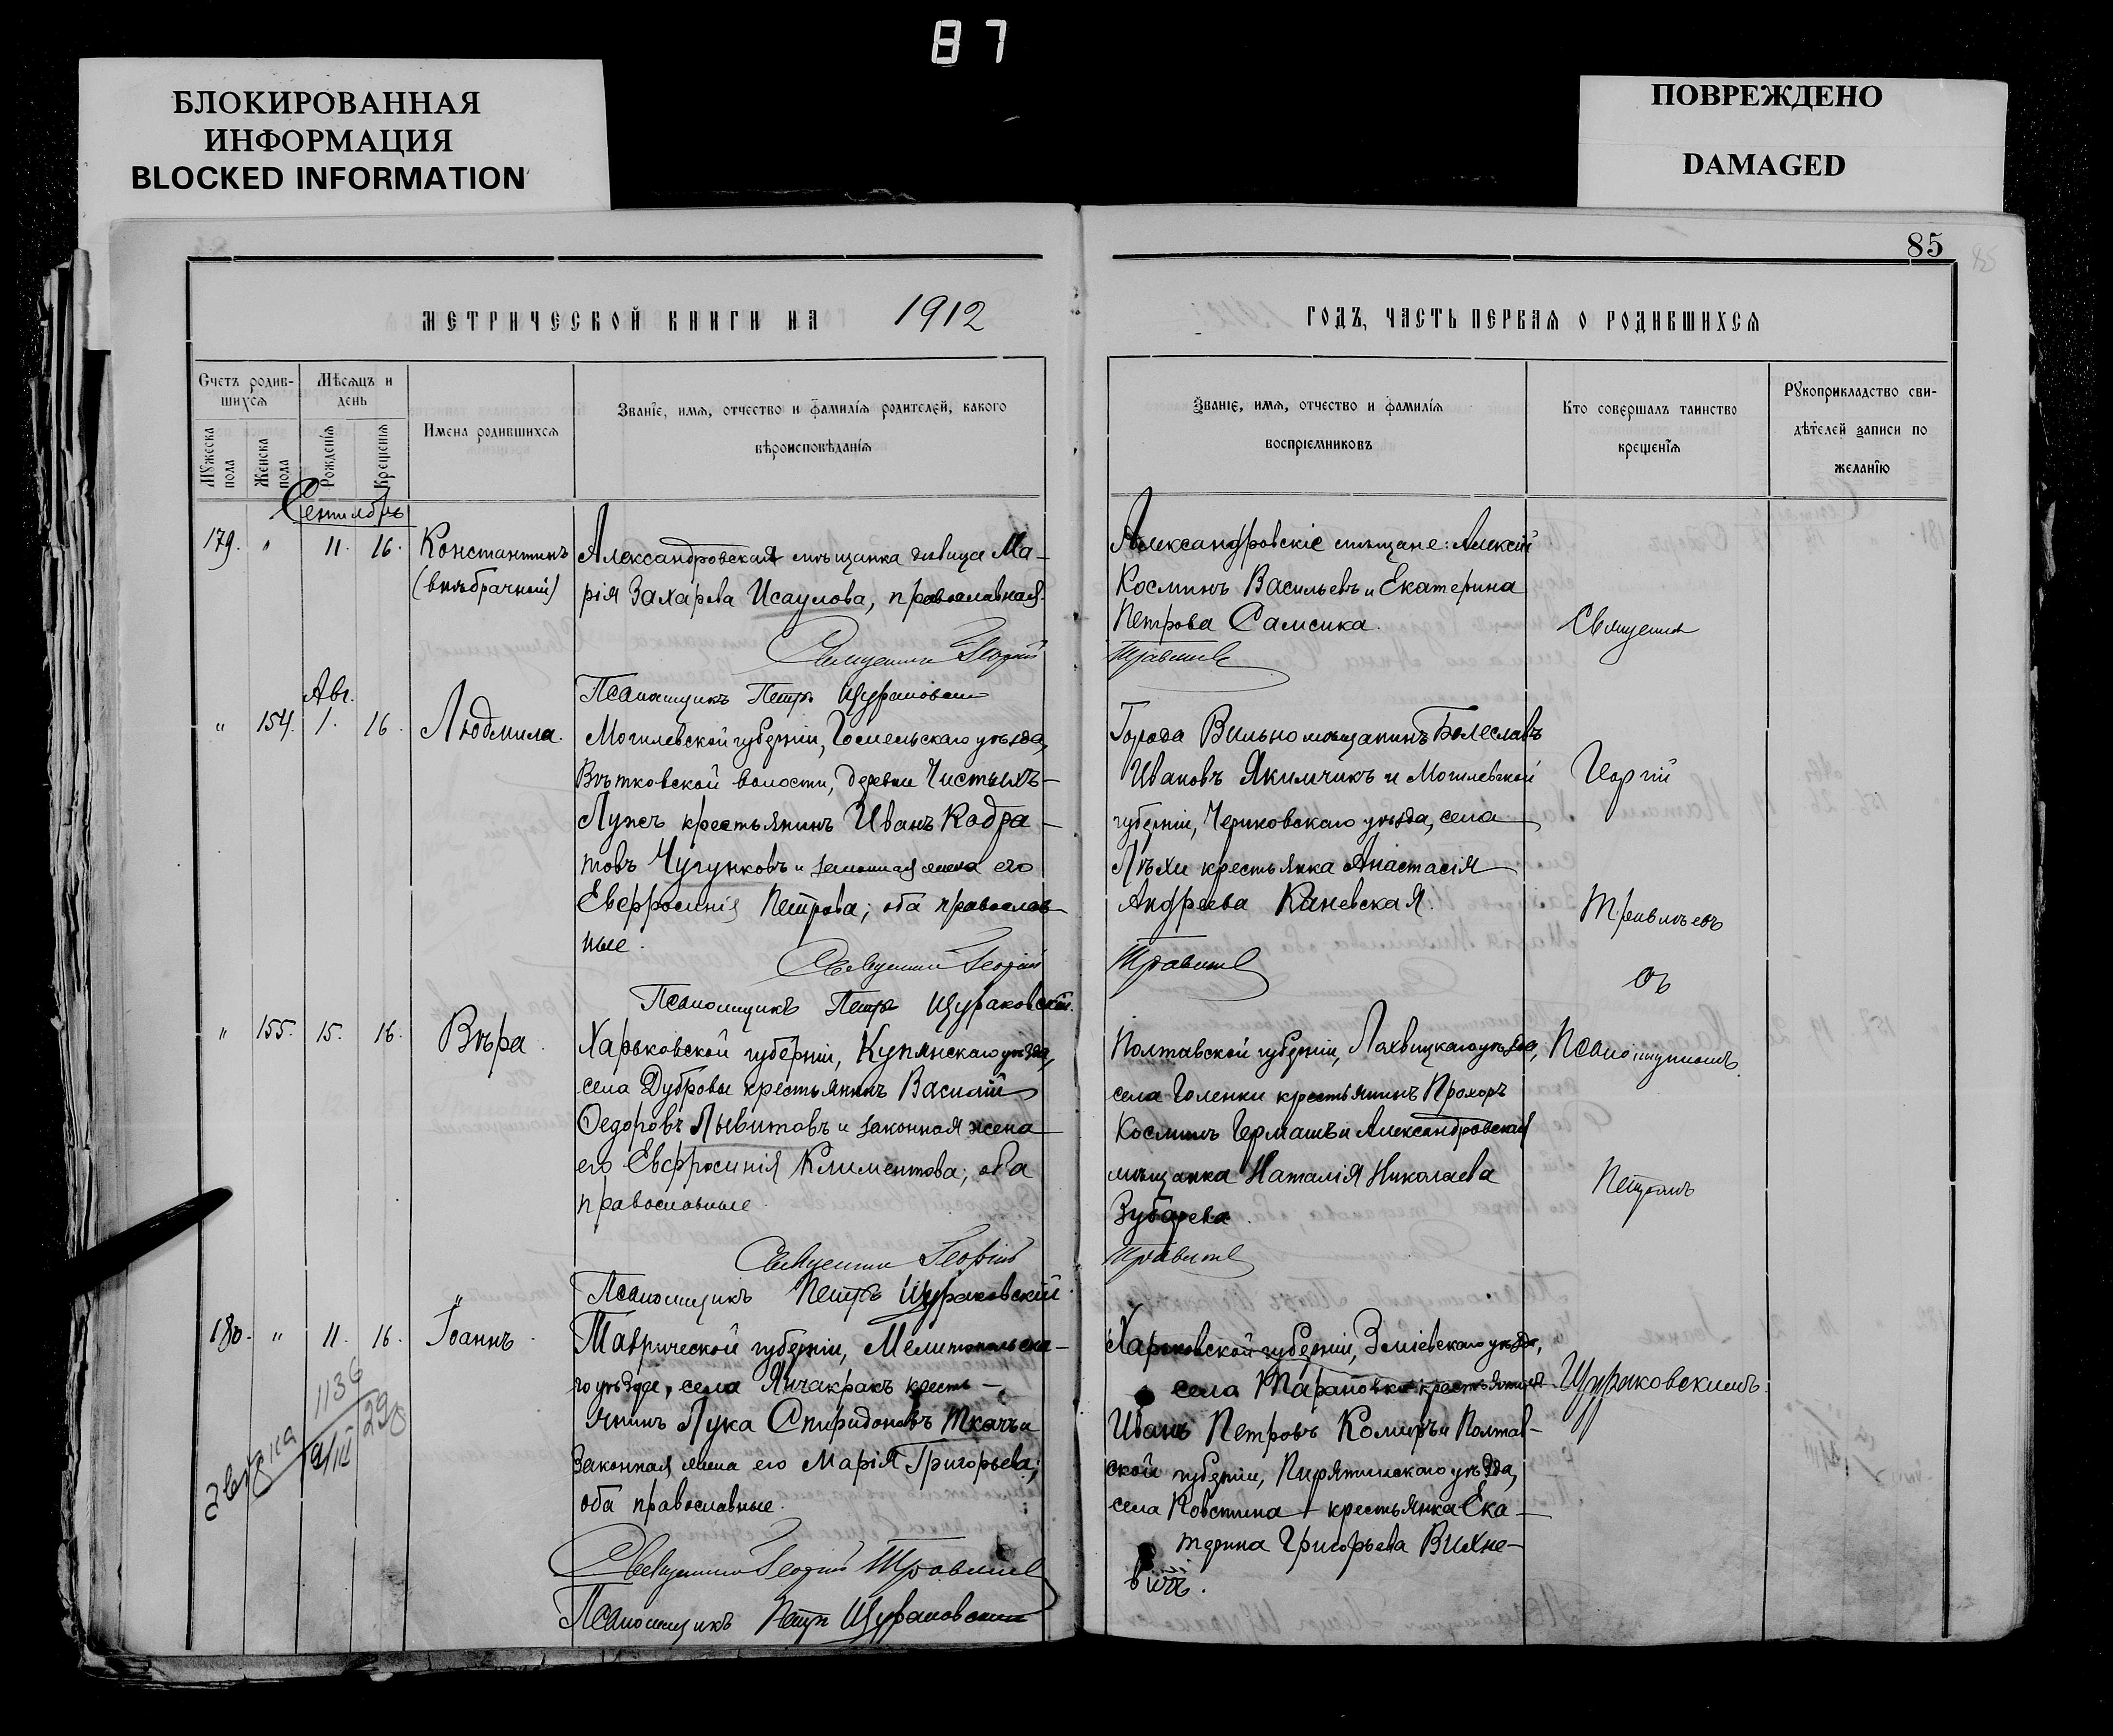 87
БЛОКИРОВАННАЯ
ИНФОРМАЦИЯ
BLOCKED INFORMATION
ПОВРЕЖДЕНО
DAMAGED
85
МЕТРИЧЕСКОЙ КНИГИ НА 1912
ГОДЪ, ЧАСТЬ ПЕРВАЯ О РОДИВШИХСЯ
Счетъ родив-
шихся
Мѣсяцъ и
день
Мужеска пола
Женска пола
Рожденія
Крещенія
Имена родившихся
Званіе, имя, отчество и фамилія родителей, какого
вѣроисповѣданія
Званіе, имя, отчество и фамилія
воспріемниковъ
Кто совершалъ таинство
крещенія
Рукоприкладство сви-
дѣтелей записи по
желанію
Сентябрь
179. " 11. 16.
Константинъ
(внѣбрачный)
Александровская мѣщанка дѣвица Ма-
рія Захарева Исаулова, православная.
Священник Георгій
Псаломщикъ Петръ Щураковскій
Александровскіе мѣщане: Алексій
Косминъ Васильевъ и Екатерина
Петрова Самсика.
Травлѣев
Авг.
" 154. 1. 16.
Людмила.
Могилевской губерніи, Гомельскаго уѣзда,
Вѣтковской волости, деревни Чистыхъ-
Лужъ крестьянинъ Иванъ Кодра-
товъ Чугунковъ и законная жена его
Евфросинія Петрова; оба православ-
ные.
Священник Георгій
Псаломщикъ Петръ Щураковскій.
Города Вильно мѣщанинъ Болеславъ
Ивановъ Якимчикъ и Могилевской
губерніи, Чериковскаго уѣзда, села
Лѣхи крестьянка Анастасія
Андреева Каневская.
Травлѣев
" 155. 15. 16.
Вѣра.
Харьковской губерніи, Купянскаго уѣзда,
села Дубровы крестьянинъ Василій
Федоровъ Лывитовъ и законная жена
его Евфросинія Климентова; оба
православные.
Священник Георгій
Псаломщикъ Петръ Щураковскій
Полтавской губерніи, Лохвицкаго уѣзда,
села Голенки крестьянинъ Прохоръ
Косминъ Гермашъ и Александровская
мѣщанка Наталія Николаева
Зубарева.
Травлѣев
180. " 11. 16.
Іоаннъ.
Таврической губерніи, Мелитопольска-
го уѣзда, села Янчакракъ кресть-
янинъ Лука Спиридоновъ Ткачъ и
законная жена его Марія Григорьева;
оба православные.
Священник Георгій Травлѣев
Псаломщикъ Петръ Щураковскій
Харьковской губерніи, Зміевскаго уѣзда,
села Тарановки крестьянинъ
Иванъ Петровъ Комиръ и Полтав-
ской губерніи, Пирятинскаго уѣзда,
села Ковтина крестьянка Ека-
терина Григорьева Вихне-
вичъ.
Священник
Георгій
Травлѣевъ
съ
Псаломщикомъ
Петромъ
Щураковскимъ.
1136